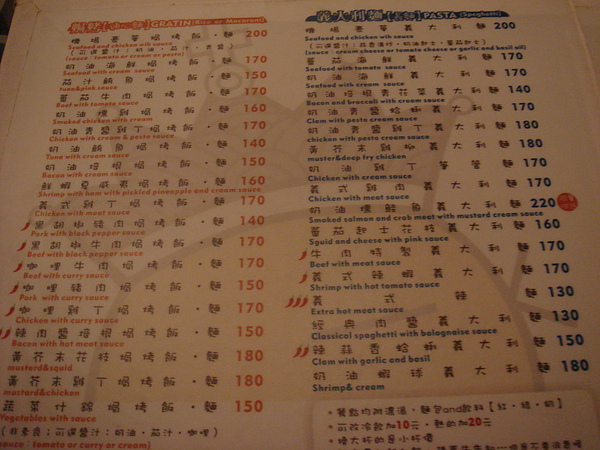 焗烤【飯/麵】GRATIN(Rice or Macaroni)
機場豪華焗烤飯・麵 200
Seafood and chicken with sauce
(可選醬汁：奶油・茄汁・青醬)
(sauce : tomato or cream or pesto)
奶油海鮮焗烤飯・麵 170
Seafood with cream sauce
茄汁鮪魚焗烤飯・麵 150
tuna&pink sauce
蕃茄牛肉焗烤飯・麵 170
Beef with tomato sauce
奶油燻雞焗烤飯・麵 160
Smoked chicken with cream
奶油青醬雞丁焗烤飯・麵 170
Chicken with cream & pesto sauce
奶油鮪魚焗烤飯・麵 140
Tuna with cream sauce
奶油培根焗烤飯・麵 150
Bacon with cream sauce
鮮蝦夏威夷焗烤飯・麵 160
Shrimp with ham with pickled pineapple and cream sauce
義式雞丁焗烤飯・麵 170
Chicken with meat sauce
黑胡椒豬肉焗烤飯・麵 140
Pork with black pepper sauce
黑胡椒牛肉焗烤飯・麵 170
Beef with black pepper sauce
咖哩牛肉焗烤飯・麵 170
Beef with curry sauce
咖哩豬肉焗烤飯・麵 150
Pork with curry sauce
咖哩雞丁焗烤飯・麵 170
Chicken with curry sauce
辣肉醬培根焗烤飯・麵 150
Bacon with hot meat sauce
黃芥末花枝焗烤飯・麵 180
mustard&squid
黃芥末雞丁焗烤飯・麵 180
mustard&chicken
蔬菜什錦焗烤飯・麵 150
Vegetables with sauce
(非素食；可選醬汁：奶油・茄汁・咖哩)
(sauce : tomato or curry or cream)
義大利麵 PASTA (Spaghetti)
機場豪華義大利麵 200
Seafood and chicken with sauce
(sauce : cream cheese or tomato cheese or garlic and basil oil)
蕃茄海鮮義大利麵 170
Seafood with tomato sauce
奶油海鮮義大利麵 170
Seafood with cream sauce
奶油培根青花菜義大利麵 140
Bacon and broccoli with cream sauce
奶油青醬蛤蜊義大利麵 170
Clam with pesto cream sauce
奶油青醬雞丁義大利麵 180
chicken with pesto cream sauce
黃芥末雞柳義大利麵 180
muster&deep fry chicken
奶油雞丁筆管麵 170
Chicken with cream sauce
義式雞肉義大利麵 170
Chicken with meat sauce
奶油燻鮭魚義大利麵 220
Smoked salmon and crab meat with mustard cream sauce
蕃茄起士花枝義大利麵 160
Squid and cheese with pink sauce
牛肉特製義大利麵 170
Beef with meat sauce
義式辣蝦義大利麵 170
Shrimp with hot tomato sauce
義式辣麵 130
Extra hot meat sauce
經典肉醬義大利麵 130
Classical spaghetti with bolognaise sauce
辣蒜香蛤蜊義大利麵 150
Clam with garlic and basil
奶油蝦球義大利麵 180
Shrimp& cream
*餐點均附濃湯・麵包and飲料【紅・綠・奶】
*可改冷飲加10元・熱的加20元